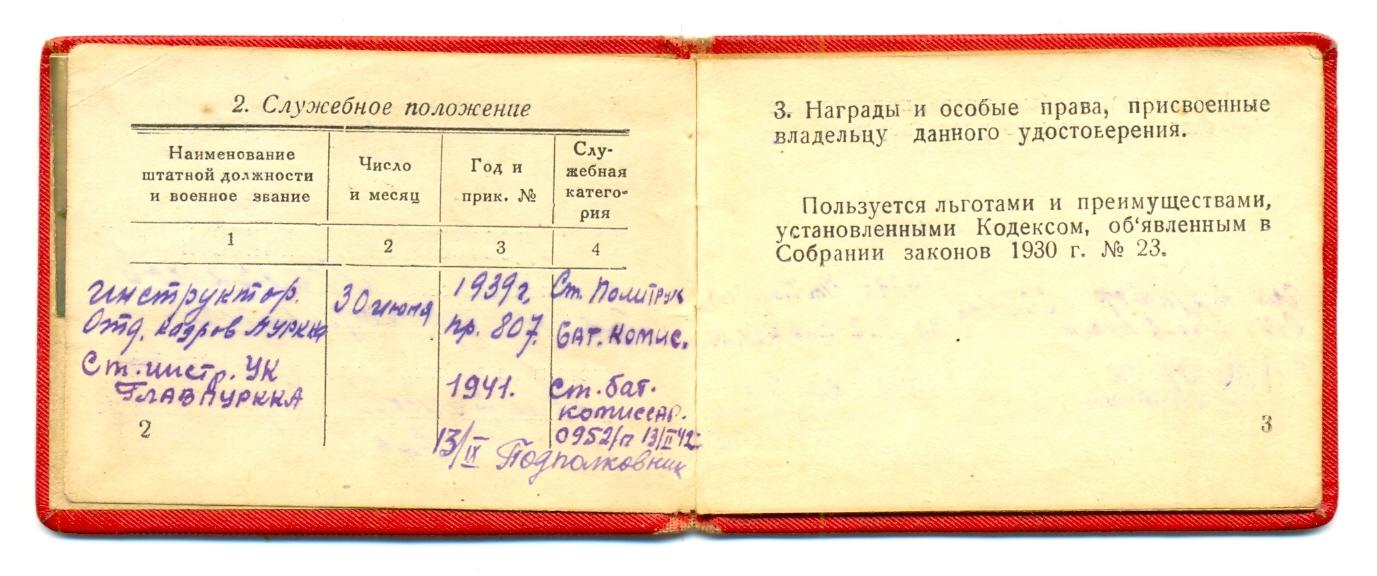 2. Служебное положение
Наименование
штатной должности
и военное звание
Число
и месяц
Год и
прик. №
Слу-
жебная
катего-
рия
1
2
3
4
Инструктор.
Отд. кадров ПУРККА
30 июня
1939 г.
пр. 807.
Ст. Политрук
Бат. комис.
Ст. инстр. УК
ГлавПУРККА
1941.
Ст. бат.
комиссар.
0952/п 13/II 42
13/IX Подполковник
2
3. Награды и особые права, присвоенные
владельцу данного удостоверения.
Пользуется льготами и преимуществами,
установленными Кодексом, об‘явленным в
Собрании законов 1930 г. № 23.
3